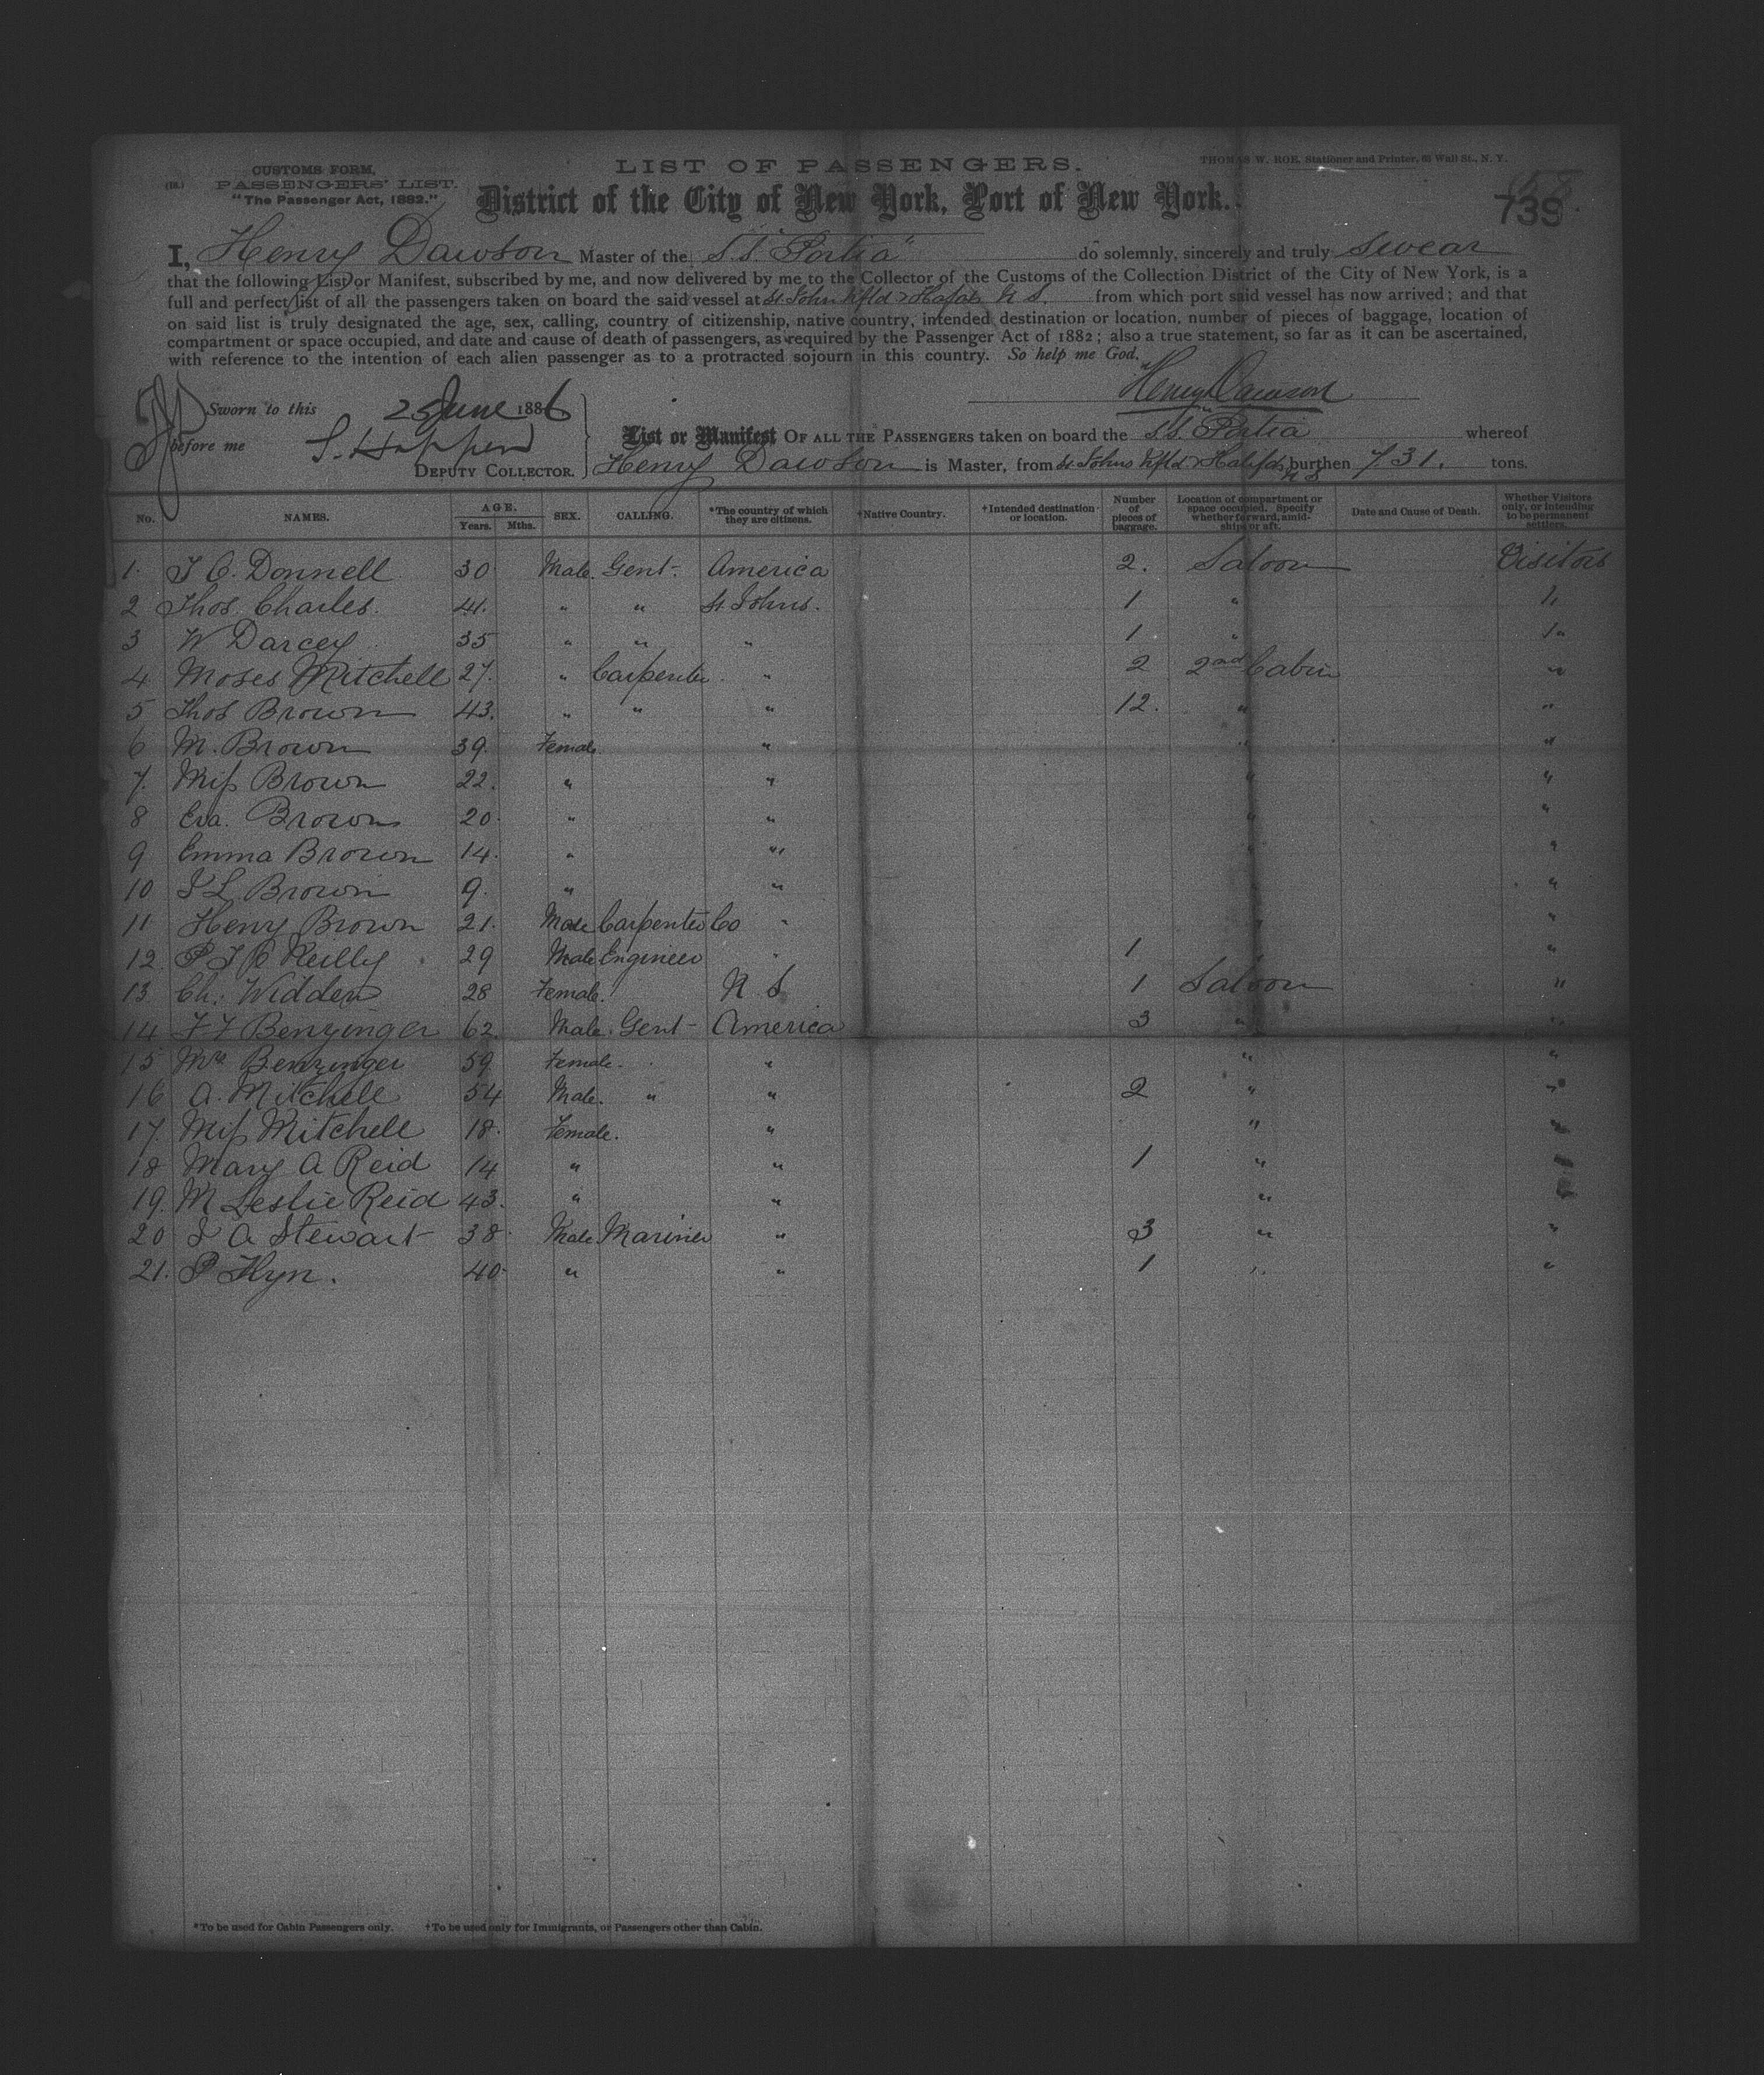 CUSTOMS FORM, LIST OF PASSENGERS. THOMAS W. ROE, Stationer and Printer, 63 Wall St., N. Y.
PASSENGERS' LIST.
"The Passenger Act, 1882." District of the City of New York, Port of New York. 739
I, Henry Dawson Master of the S.S. "Portia" do solemnly, sincerely and truly Swear
that the following List or Manifest, subscribed by me, and now delivered by me to the Collector of the Customs of the Collection District of the City of New York, is a
full and perfect list of all the passengers taken on board the said vessel at St John Nfld & Hafax N S. from which port said vessel has now arrived; and that
on said list is truly designated the age, sex, calling, country of citizenship, native country, intended destination or location, number of pieces of baggage, location of
compartment or space occupied, and date and cause of death of passengers, as required by the Passenger Act of 1882; also a true statement, so far as it can be ascertained,
with reference to the intention of each alien passenger as to a protracted sojourn in this country. So help me God.
Henry Dawson
Sworn to this 25 June 1886
before me
List or Manifest OF ALL THE PASSENGERS taken on board the S.S. "Portia" whereof
DEPUTY COLLECTOR. Henry Dawson is Master, from St Johns Nfld & Halifax N S burthen 731. tons.
No. NAMES. AGE. Years. Mths. SEX. CALLING. *The country of which they are citizens. †Native Country. †Intended destination or location. Number of pieces of baggage. Location of compartment or space occupied. Specify whether forward, amidships or aft. Date and Cause of Death. Whether Visitors only, or intending to be permanent settlers.
1. J O. Donnell 30 Male. Gent- America 2. Saloon Visitors
2 Thos Charles. 41. " " St Johns. 1 " "
3 W Darcey 35 " " " 1 " "
4 Moses Mitchell 27. " Carpenter " 2 2nd Cabin "
5 Thos Brown 43. " " " 12. " "
6 M. Brown 39. Female. " " "
7. Miss Brown 22. " " " "
8 Eva. Brown 20. " " " "
9 Emma Brown 14. " " " "
10 J L Brown 9. " " "
11 Henry Brown 21. Male Carpenter Co " " "
12. P J O Reilly 29 Male Engineer " 1 "
13. Ch. Widden 28 Female. N. S 1 Saloon "
14 F F Benzinger 62. Male. Gent- America 3 " "
15 Mrs Benzinger 59 Female. " " "
16 A. Mitchell 54 Male. " " 2 " "
17. Miss Mitchell 18. Female. " " "
18 Mary A Reid 14 " " 1 "
19. M Leslie Reid 43. " " "
20 J A Stewart 38. Male Mariner " 3 " "
21. P Flyn. 40. " " 1 " "
*To be used for Cabin Passengers only. †To be used only for Immigrants, or Passengers other than Cabin.